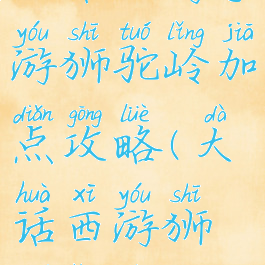 yóu shī tuó lǐng jiā
游狮驼岭加
diǎn gōng lüè dà
点攻略(大
huà xī yóu shī
话西游狮